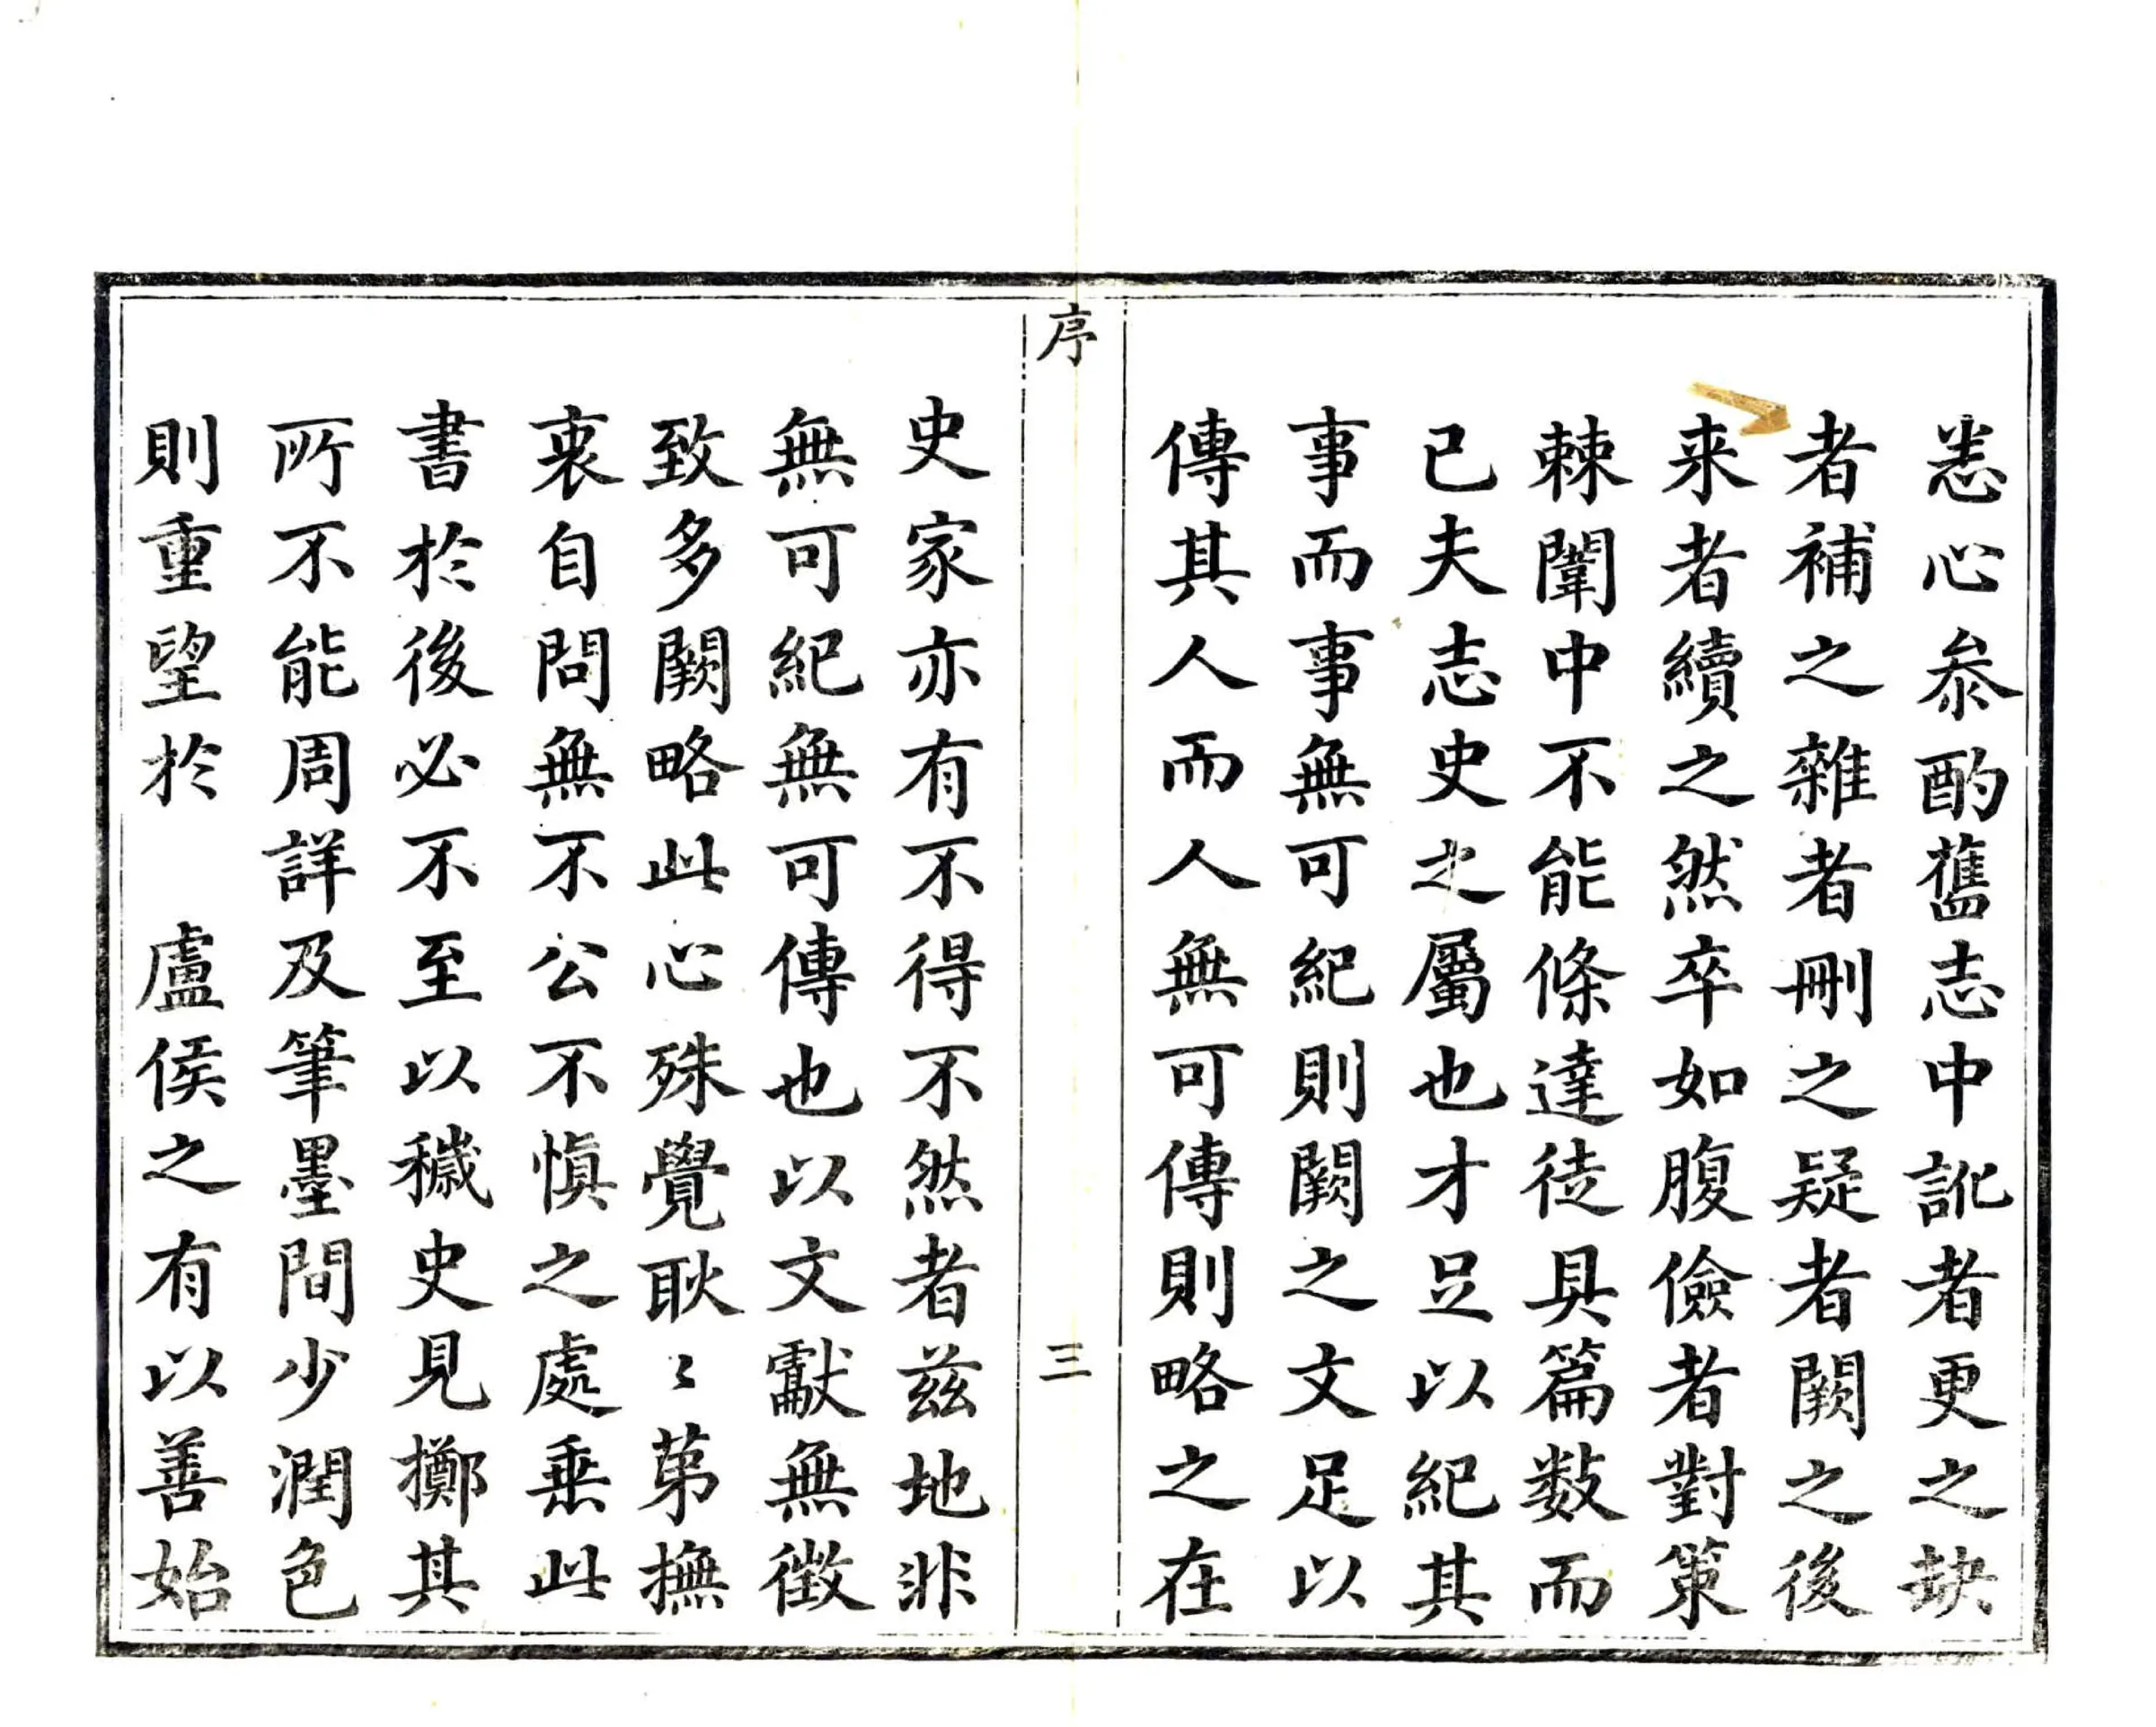 悉心叅酌舊志中訛者更之缺
者補之雜者刪之疑者闕之後
来者續之然卒如腹儉者對策
棘闈中不能條達徒具篇数而
已夫志史之屬也才足以紀其
事而事無可紀則闕之文足以
傳其人而人無可傳則略之在
序
三
史家亦有不得不然者兹地非
無可紀無可傳也以文獻無徴
致多闕略此心殊覺耿〻苐撫
衷自問無不公不慎之處垂此
書於後必不至以穢史見擲其
所不能周詳及筆墨間少潤色
則重望於　盧侯之有以善始